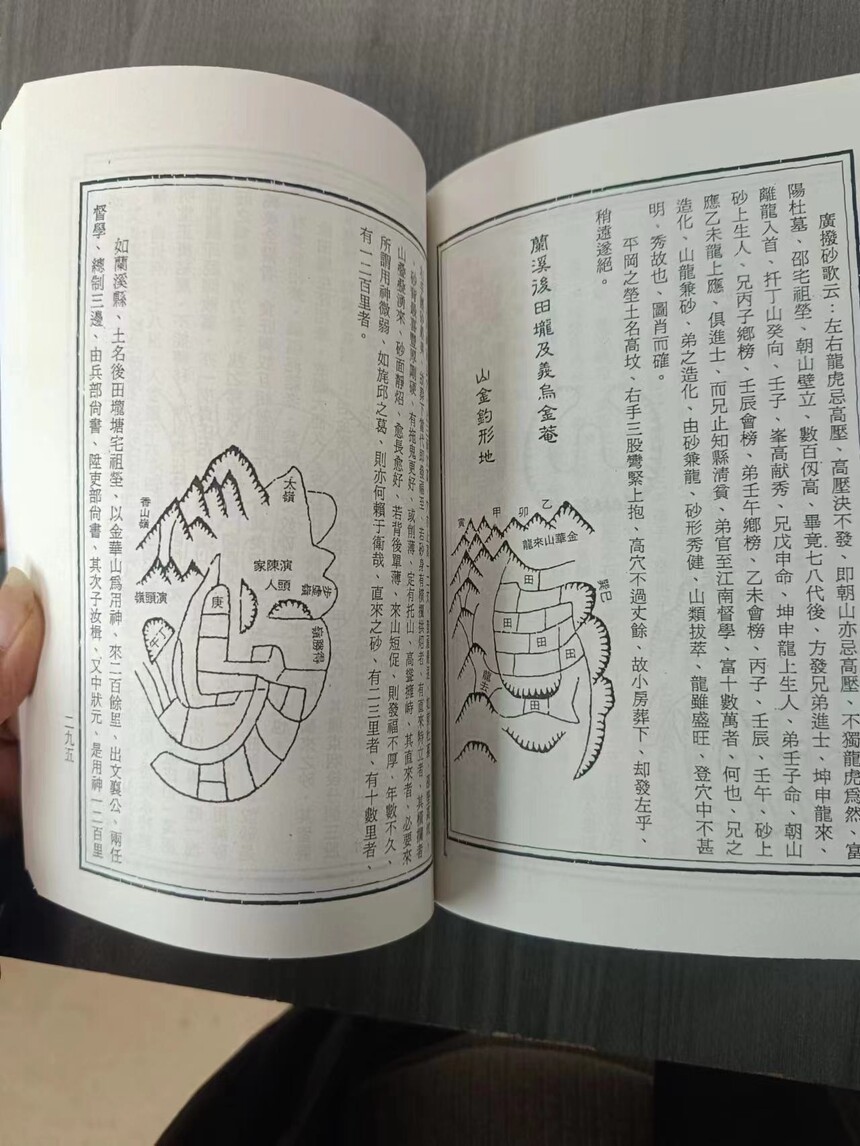 廣撥砂歌云：左右龍虎忌高壓、高壓決不發、即朝山亦忌高壓、不獨龍虎爲然、富
陽杜墓、邵宅祖塋、朝山壁立、數百仭高、畢竟七八代後、方發兄弟進士、坤申龍來、
離龍入首、扦丁山癸向、壬子、峯高献秀、兄戊申命、坤申龍上生人、弟壬子命、朝山
砂上生人、兄丙子鄉榜、壬辰會榜、弟壬午鄉榜、乙未會榜、丙子、壬辰、壬午、砂上
應乙未龍上應、俱進士、而兄止知縣淸貧、弟官至江南督學、富十數萬者、何也、兄之
造化、山龍兼砂、弟之造化、由砂兼龍、砂形秀健、山類拔萃、龍雖盛旺、登穴中不甚
明、秀故也、圖肖而確。
平岡之塋土名高坟、右手三股彎緊上抱、高穴不過丈餘、故小房葬下、却發左乎、
稍遠遂絕。
蘭溪後田壠及義烏金菴
山金釣形地
乙
卯
甲
寅
金華山來龍
巽巳
田
田
田
田
田
龍去
山疊疊湧來、砂面靜焰、愈長愈好、若背後單薄、來山短促、則發福不厚、年數不久、
所謂用神微弱、如旄邱之葛、則亦何賴于衛哉、直來之砂、有二三里者、有十數里者、
有一二百里者。
太嶺
香山嶺
演陳家
人頭
演頭嶺
庚
如蘭溪縣、土名後田壠塘宅祖塋、以金華山爲用神、來二百餘里、出文襄公、兩任
督學、總制三邊、由兵部尙書、陞吏部尙書、其次子汝楫、又中狀元、是用神一二百里
二九五